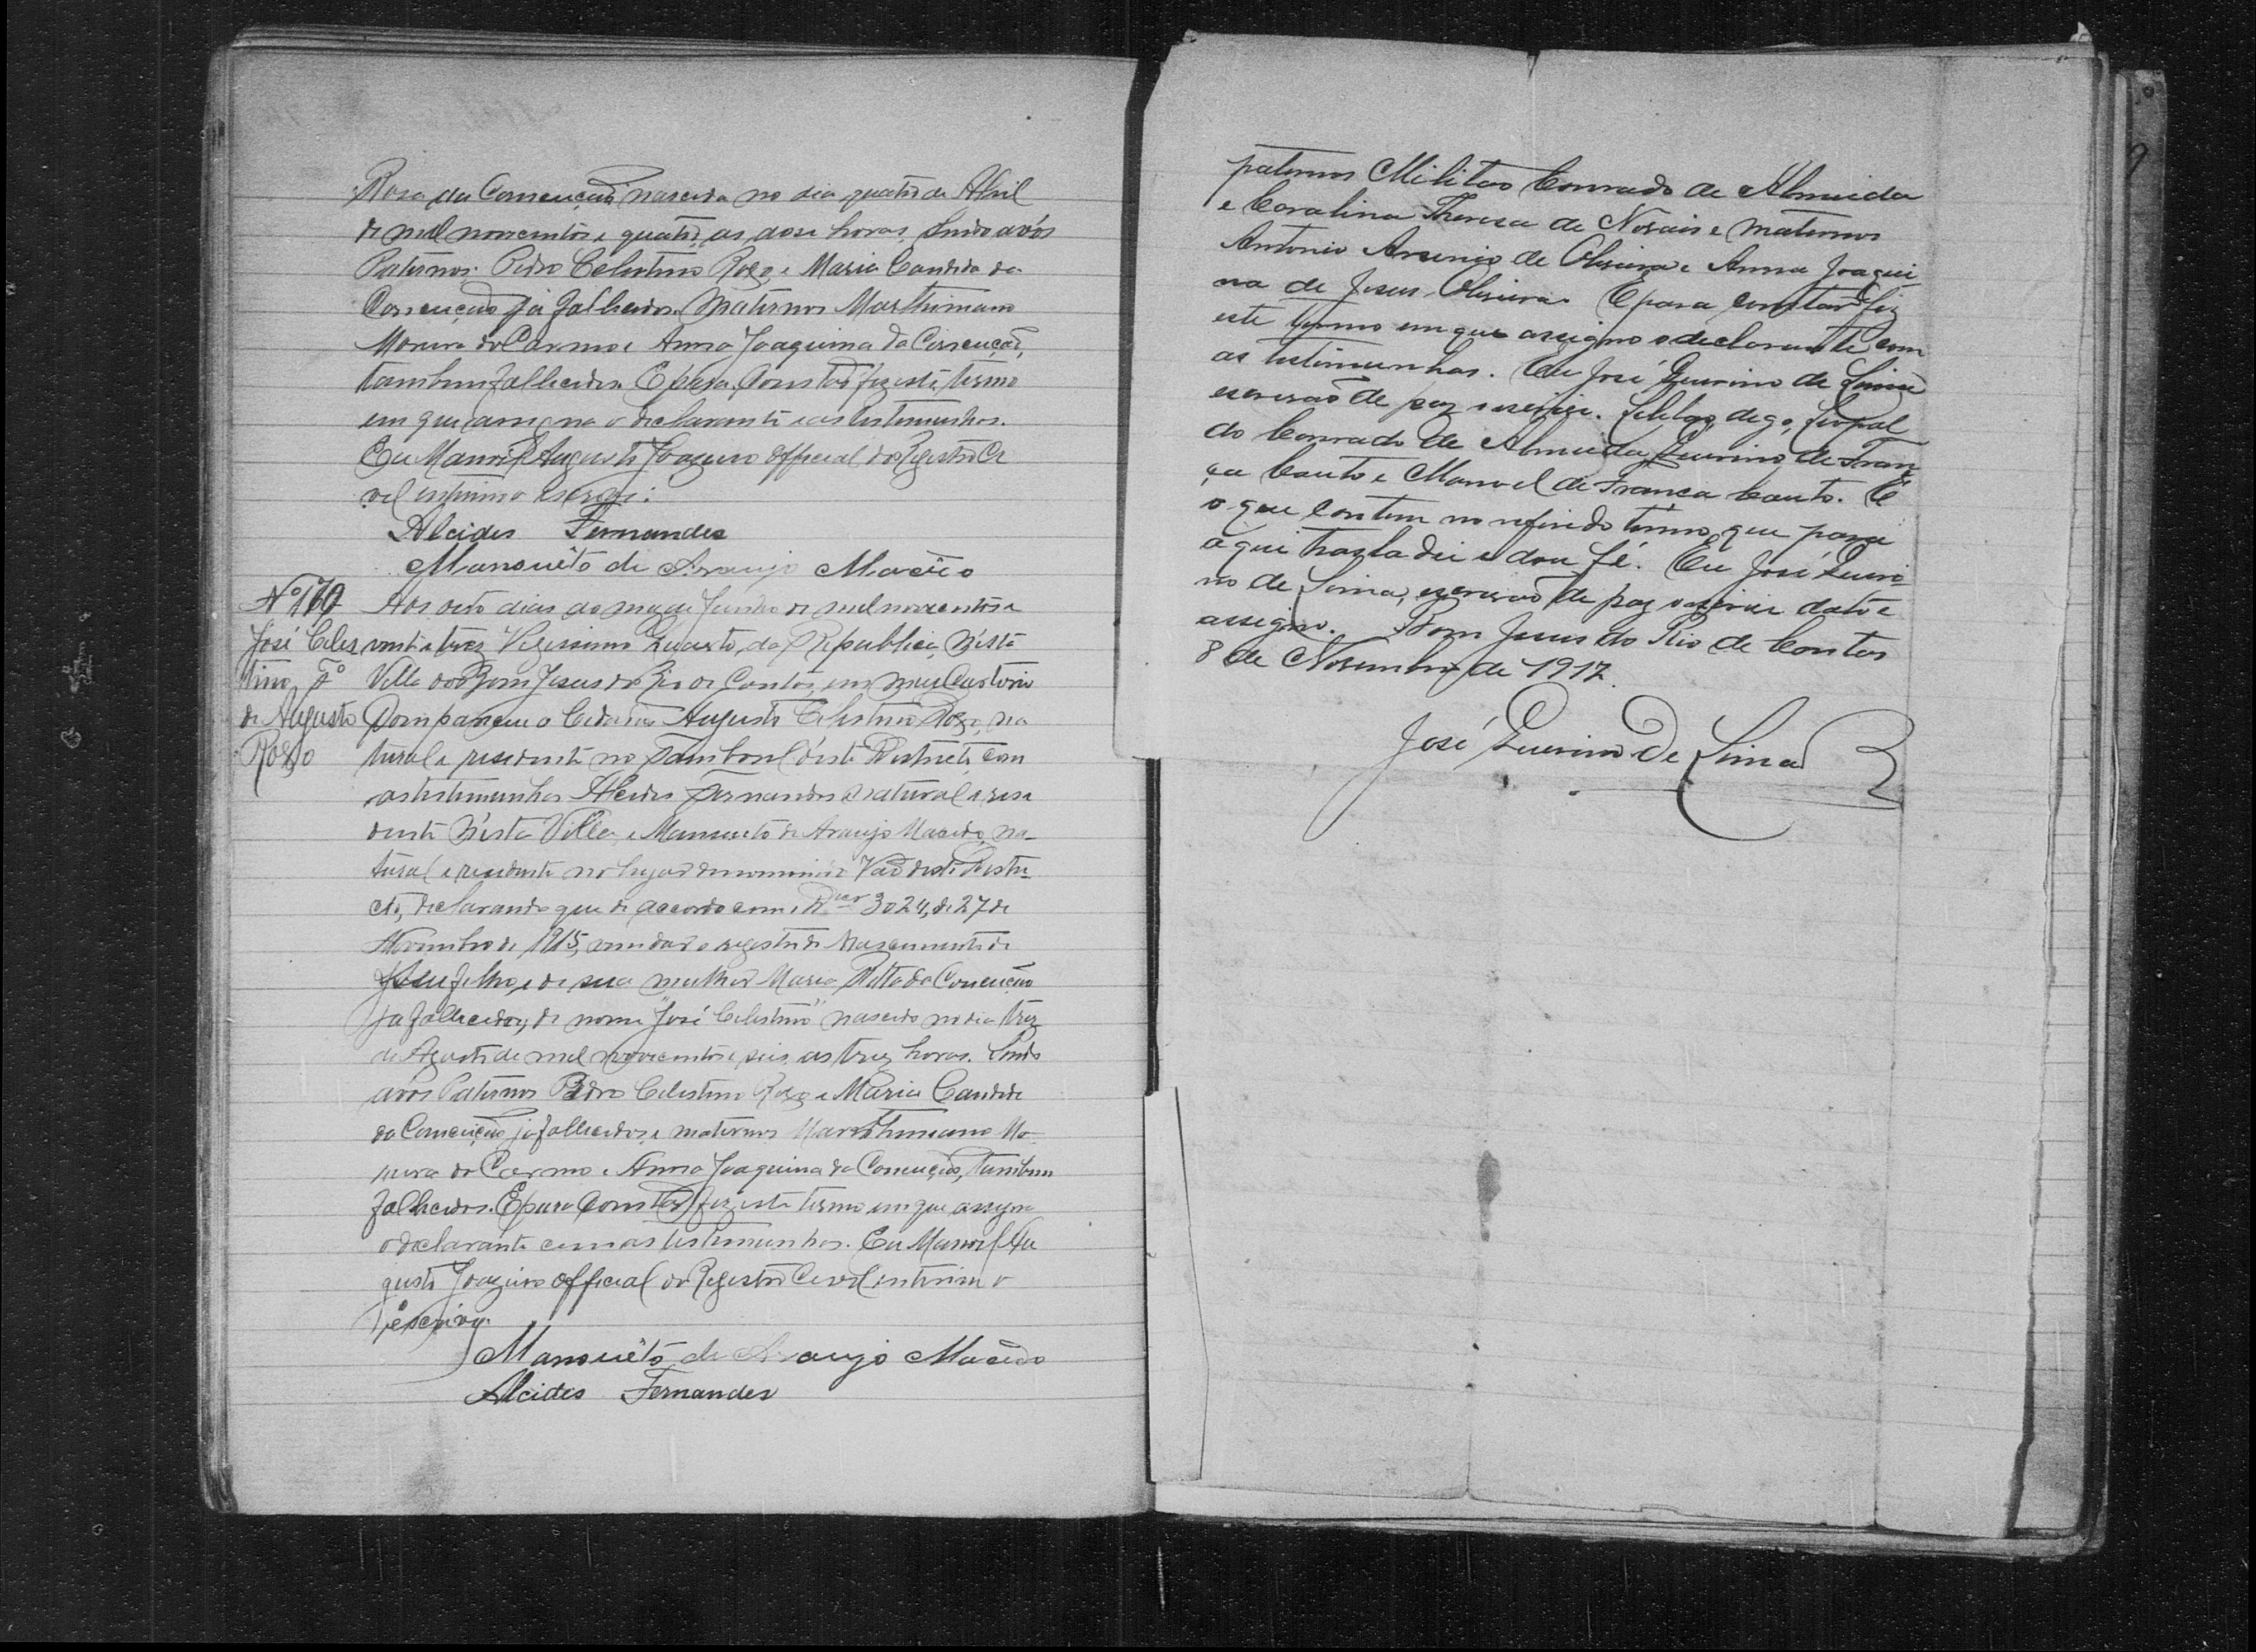 Rosa da Conceução nascida no dia quatro de Abril
de mil novecentos e quatro, as dose horas, Sendo avós
Paternos: Pedro Celestino Roxo, e Maria Candida da
Conceução já falhecidos, Maternos Marthiniano
Moreira do Carmo e Anna Joaquina da Conceução,
tambem falhecidos. E para Constar fiz este termo
em que assigna o declarante e as testimunhas.
Eu Manoel Augusto Joazeiro Official do Registro Ci
vil interino escrevi:
Alcides Fernandes
Mansuêto de Araujo Macêdo
Nº 170
José Celes
tino, Fº
de Augusto
Roxo
Aos oito dias do mez de Junho de mil novecentos e
vinte e trez, Vigessimo Quarto, da Republica, N'esta
Villa do Bom Jesus do Rio de Contas, em meu Cartorio
Compareceu o Cidadão Augusto Celestino Roxo, na
tural e residente no Tamboril d'este Districto, com
as testimunhas Alcides Fernandes natural e resi
dente N'esta Villa, e Mansueto de Araujo Macedo, na-
tural e residente no lugar denominado Vão deste Distri-
cto, declarando que de accordo com o 3024, de 27 de
Novembro de 1915, vem dar o registro de Nascimento de
seu filho, e de sua mulher Maria Ritta da Conceução
ja falhecida, de nome "José Celestino" nascido no dia trez
de Agosto de mil novecentos e seis, as trez horas. Sendo
avós Paternos Pedro Celestino Roxo e Maria Candida
da Conceução ja falhecidos, e maternos Marthiniano Mo
reira do Carmo e Anna Joaquina da Conceução, tambem
falhecidos. E para Constar fiz este termo em que assigna
o declarante com as testimunhas. Eu Manoel Au
gusto Joazeiro Official do Registro Civil interino o
escrivy.
Mansuêto de Araujo Macêdo
Alcides Fernandes
paternos Militão Conrado de Almeida
e Coralina Thereza de Novais e maternos
Antonio Arsenio de Oliveira e Anna Joaqui-
na de Jesus Oliveira. E para constar fiz
este termo em que assigno o declarante com
as testimunhas. Eu José Querino de Lima
escrivão de paz o escrivi. digo, Liopol
do Conrado de Almeida, Querino de Fran
ça Couto e Manoel de França Couto. É
o que contem no referido termo que para
aqui trasladei e dou fé. Eu José Queri-
no de Lima, escrivão de paz o escrivi dato e
assigno. Bom Jesus do Rio de Contas
8 de Novembro de 1917.
José Querino de Lima